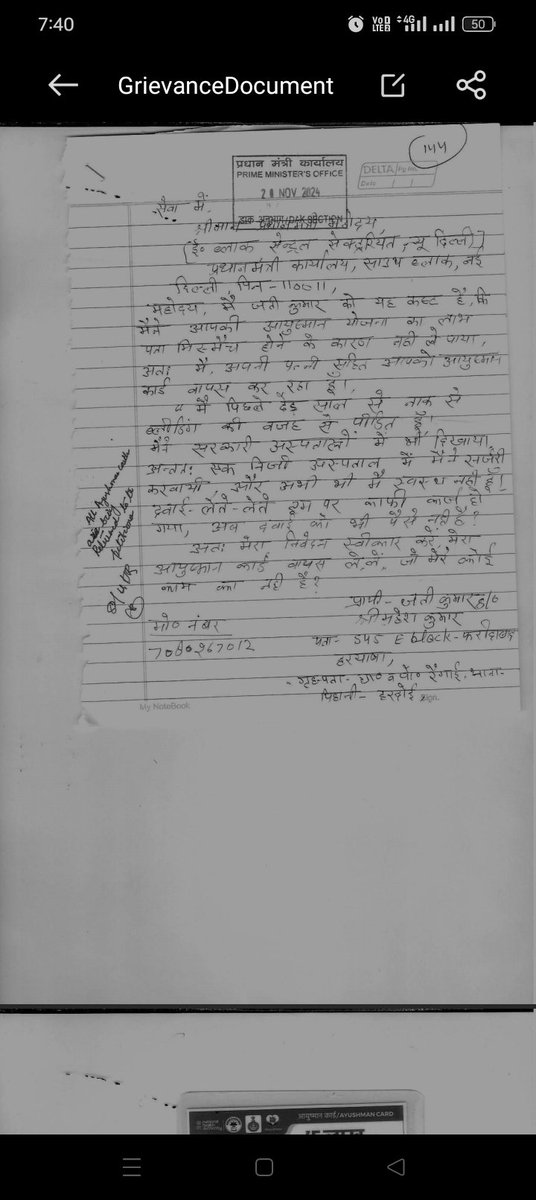 7:40
Vo LTE 4G 50
GrievanceDocument
144
प्रधान मंत्री कार्यालय
PRIME MINISTER'S OFFICE
NOV 2024
DELTA Pg No.
Date / /
सेवा में,
श्रीमान प्रधानमंत्री महोदय
(ई० ब्लाक सेन्ट्रल न्यू दिल्ली)
प्रधानमंत्री कार्यालय, साउथ ब्लाक, नई
दिल्ली, पिन-110011,
महोदय, मैं जती कुमार को यह कष्ट है, कि
मैंने आपकी आयुष्मान योजना का लाभ
पता मिसमैच होने के कारण नही ले पाया,
अतः मैं, अपनी पत्नी सहित आपको आयुष्मान
कार्ड वापस कर रहा हूँ।
मैं पिछले डेढ़ साल से नाक से
ब्लीडिंग की वजह से पीड़ित हूँ।
मैंने सरकारी अस्पतालों में भी दिखाया,
अन्ततः एक निजी अस्पताल में मैंने सर्जरी
करवायी, और अभी भी मैं स्वस्थ नही हूँ।
दवाई-लेते-लेते हम पर काफी कर्ज हो
गया, अब दवाई को भी पैसे नही है?
अतः मेरा निवेदन स्वीकार करें मेरा
आयुष्मान कार्ड वापस ले लें, जो मेरे कोई
काम का नही है?
All Ayushman cards
are being
Returned to the
प्रार्थी - जती कुमार S/o
श्री महेश कुमार
मो० नंबर
पता- 545 E block-फरीदाबाद
हरयाणा,
गृह-पता- ग्रा० व पो० रैंगाई, थाना-
पिहानी- हरदोई
Sign.
My NoteBook
आयुष्मान कार्ड/AYUSHMAN CARD